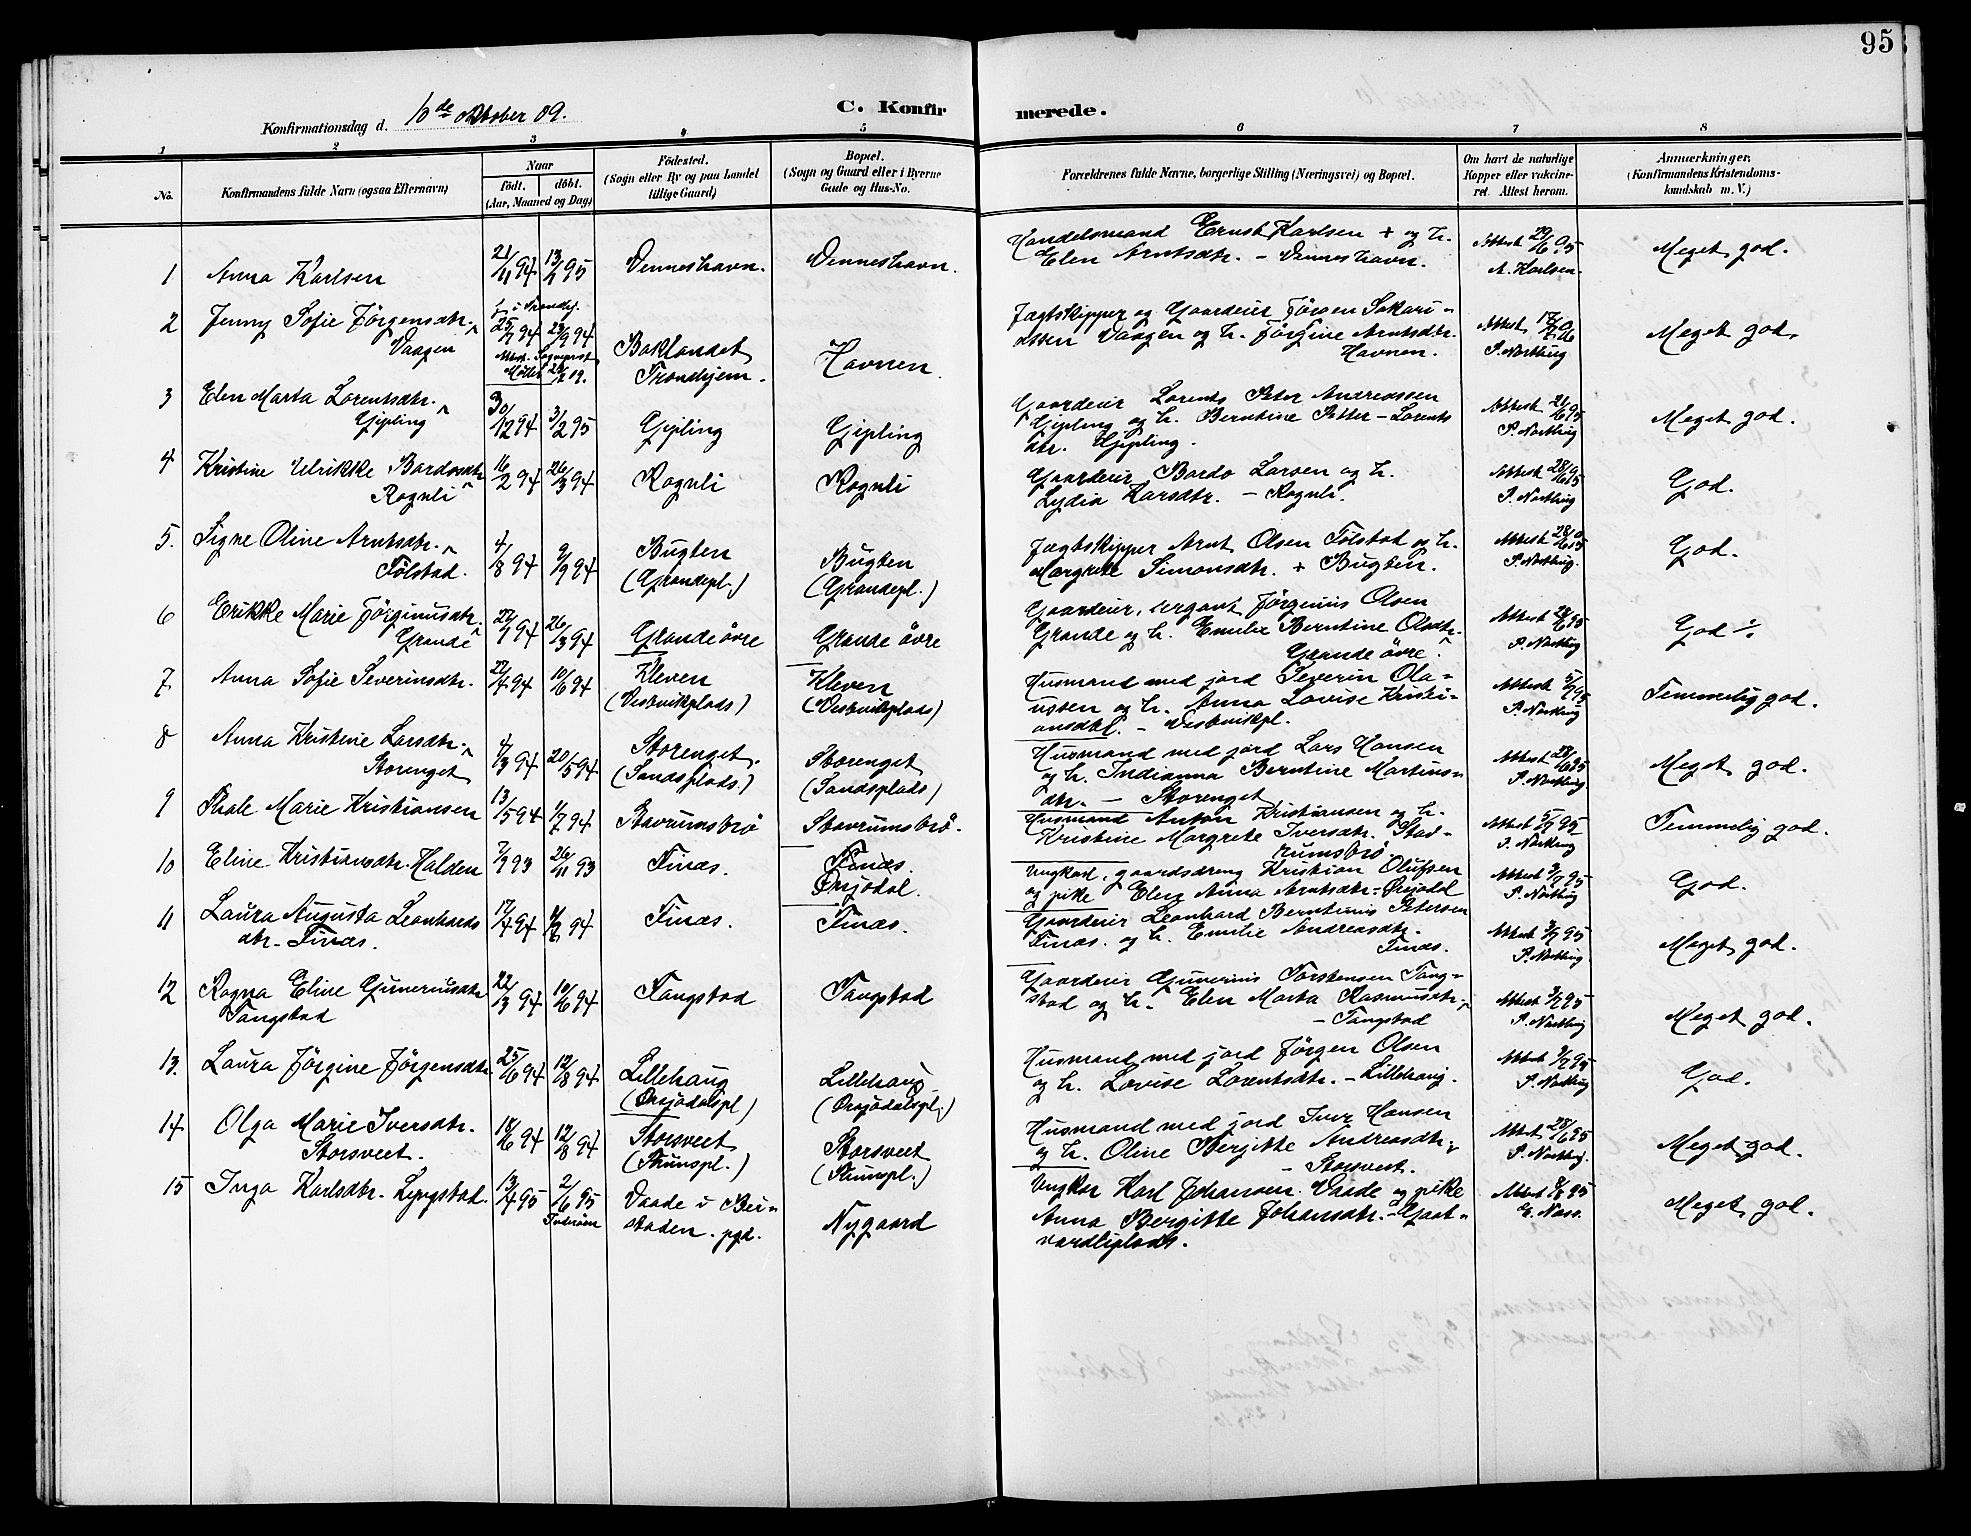 95
C. Konfirmerede.
Konfirmationsdag d. 10de oktober 09.
1 2 3 4 5 6 7 8
No.
Konfirmandens fulde Navn (ogsaa Efternavn)
Naar
født. døbt.
(Aar, Maaned og Dag)
Fødested.
(Sogn eller By og paa Landet
tillige Gaard)
Bopæl.
(Sogn og Gaard eller i Byerne
Gade og Hus-No.
Forældrenes fulde Navne, borgerlige Stilling (Næringsvei) og Bopæl.
Om havt de naturlige
Kopper eller vakcine-
ret. Attest herom.
Anmærkninger.
(Konfirmandens Kristendoms-
kundskab m. V.)
1 Anna Karlsen 21/11 94 13/1 95 Venneshavn. Venneshavn.
Handelsmand Ernst Karlsen + og h.
Elen Arntsdtr. – Venneshavn.
Attest 29/6 95
A. Karlsen.
Meget god.
2 Jenny Sofie Jørgensdtr.
Vaagen
f. i Trondhj.
25/7 94 23/9 94
Møller
Baklandet
Trondhjem.
Havnen
Jagtskipper og Gaardeier Jørgen Sakari-
assen Vaagen og h. Jørgine Arntsdtr.
Havnen.
Attest 17/7 96
P. Northug
Meget god.
3 Elen Marta Lorentsdtr.
Gipling
30/12 94 3/2 95 Gipling Gipling
Gaardeier Lorents Peter Andreassen
Gipling og h. Berntine Petter-Lorents
dtr. Gipling.
Attest 21/6 95
P. Northug
Meget god.
4 Kristine Ulrikke Bardosdtr.
Rognli
16/2 94 26/3 94 Rognli Rognli
Gaardeier Bardo Larsen og h.
Lydia Larsdtr. – Rognli.
Attest 28/6 95
P. Northug
God.
5. Signe Oline Arntsdtr.
Følstad.
4/8 94 9/9 94
Bugten
(Grandepl.)
Bugten
(Grandepl.)
Jagtskipper Arnt Olsen Følstad og h.
Margrete Simonsdtr. + Bugten.
Attest 28/6 95
P. Northug.
God.
6 Erikke Marie Jørginusdtr.
Grande
22/1 94 26/3 94 Grande øvre Grande øvre
Gaardeier, sergant Jørginus Olsen
Grande og h. Emilie Berntine Olsdtr.
Grande øvre.
Attest 28/6 95
P. Northug
God ./.
7 Anna Sofie Severinsdtr.
22/4 94 10/6 94
Kleven
(Vestvikplads)
Kleven
(Vestvikplads)
Husmand med jord Severin Ola-
ussen og h. Anna Lovise Kristi-
ansdtr. – Vestvikpl.
Attest 5/7 95
P. Northug
Temmelig god.
8 Anna Kristine Larsdtr.
Storenget
4/3 94 20/5 94
Storenget.
(Sandsplads.)
Storenget
(Sandsplads)
Husmand med jord Lars Hansen
og h. Indianna Berntine Martins-
dtr. – Storenget
Attest 28/6 95
P. Northug
Meget god.
9 Thale Marie Kristiansen
13/5 94 1/7 94 Stavrumsbrø Stavrumsbrø.
Husmand Anton Kristiansen og h.
Kristine Margrete Iversdtr. Stav-
rumsbrø
Attest 5/7 95
P. Northug
Temmelig god.
10 Eline Kristiansdtr. Halden
7/9 93 26/11 93 Finæs.
Finæs.
Ørsjødal.
Ungkarl, gaardsdreng Kristian Olufsen
og pike Elen Anna Arntsdtr. Ørsjødal
Attest 3/7 95
P. Northug
God.
11 Laura Augusta Leonhards
dtr. Finæs.
17/4 94 94 Finæs. Finæs.
Gaardeier Leonhard Berntinus Petersen
Finæs. og h. Emilie Andreasdtr.
Finæs.
Attest 3/7 95
P. Northug
Meget god.
12 Ragna Eline Guneriusdtr.
Tangstad
22/3 94 10/6 94 Tangstad Tangstad
Gaardeier Gunerius Torstensen Tang-
stad og h. Elen Marta Rasmusdtr.
– Tangstad
Attest 3/7 95
P. Northug
Meget god.
13. Laura Jørgine Jørgensdtr.
25/6 94 12/8 94
Lillehaug
(Ørsjødalspl)
Lillehaug
(Ørsjødalspl.)
Husmand med jord Jørgen Olsen
og h. Lovise Lorentsdtr. – Lillehaug.
Attest 3/7 95
P. Northug
God.
14 Olga Marie Iversdtr.
Storsveet.
18/6 94 12/8 94
Storsveet
Storsveet
Husmand med jord Iver Hansen
og h. Oline Bergitte Andreasdtr.
– Storsveet.
Attest 28/6 95
P. Northug.
Meget god.
15 Inga Karlsdtr. Lyngstad.
13/4 95 2/6 95
Vaade i Bei-
staden. pgd.
Nygaard
Ungkar Karl Johansen Vaade og pike
Anna Bergitte Johansdtr.
Attest 95
E. Næss.
Meget god.